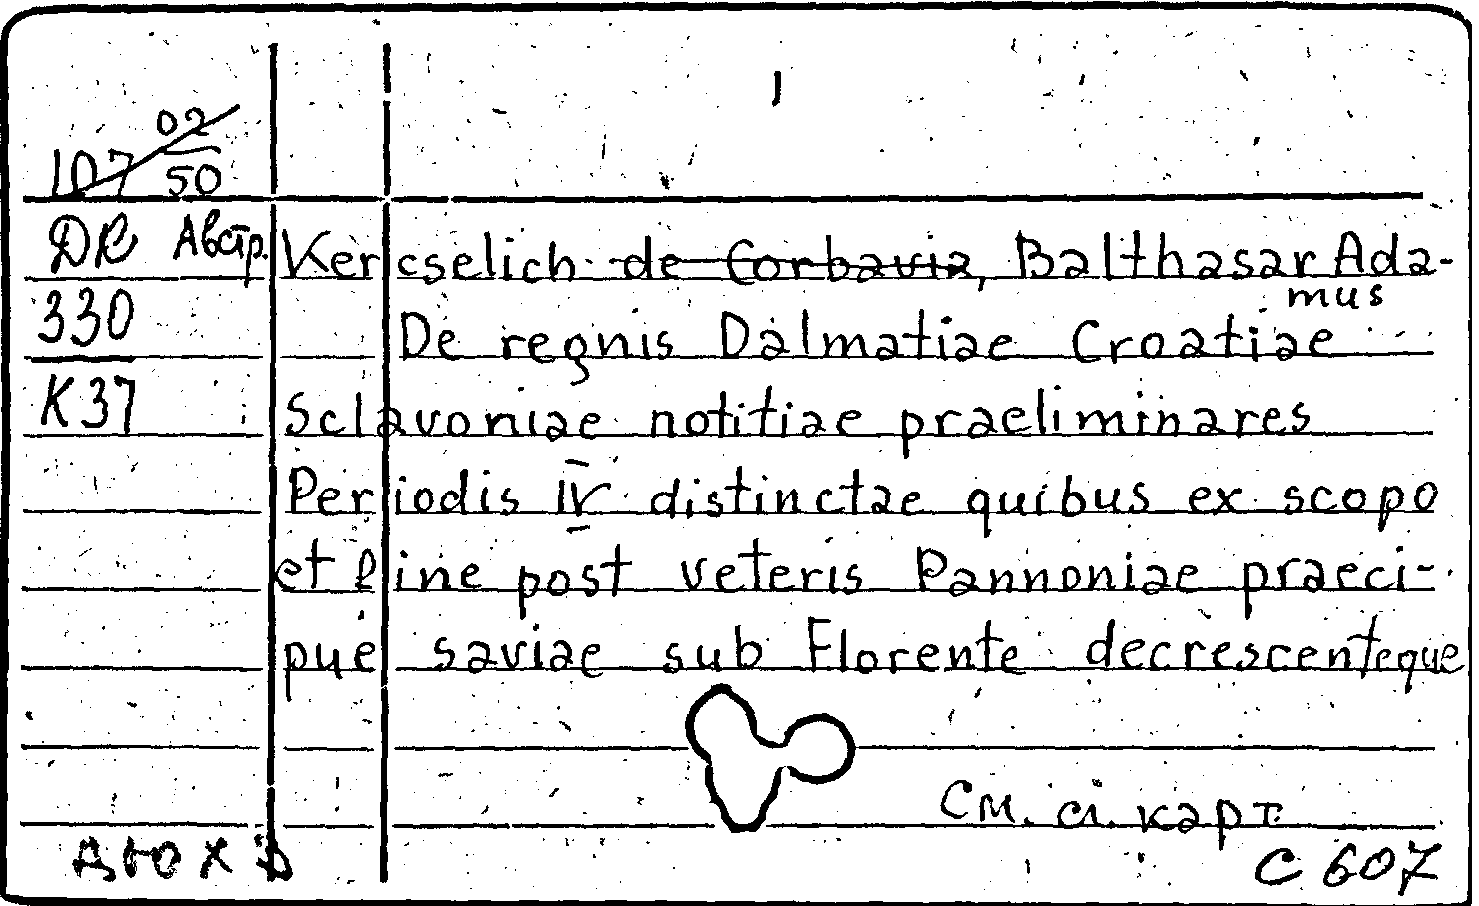 I
02
107 50
DR Австр. Kercselich de Corbavia, Balthasar Ada-
mus
330
De regnis Dalmatiae Croatiae
K37
Sclavoniae notitiae praeliminares
Periodis IV distinctae quibus ex scopo
et fine post veteris Pannoniae praeci-
pue saviae sub Florente decrescenteque
См. сл. карт.
С 607